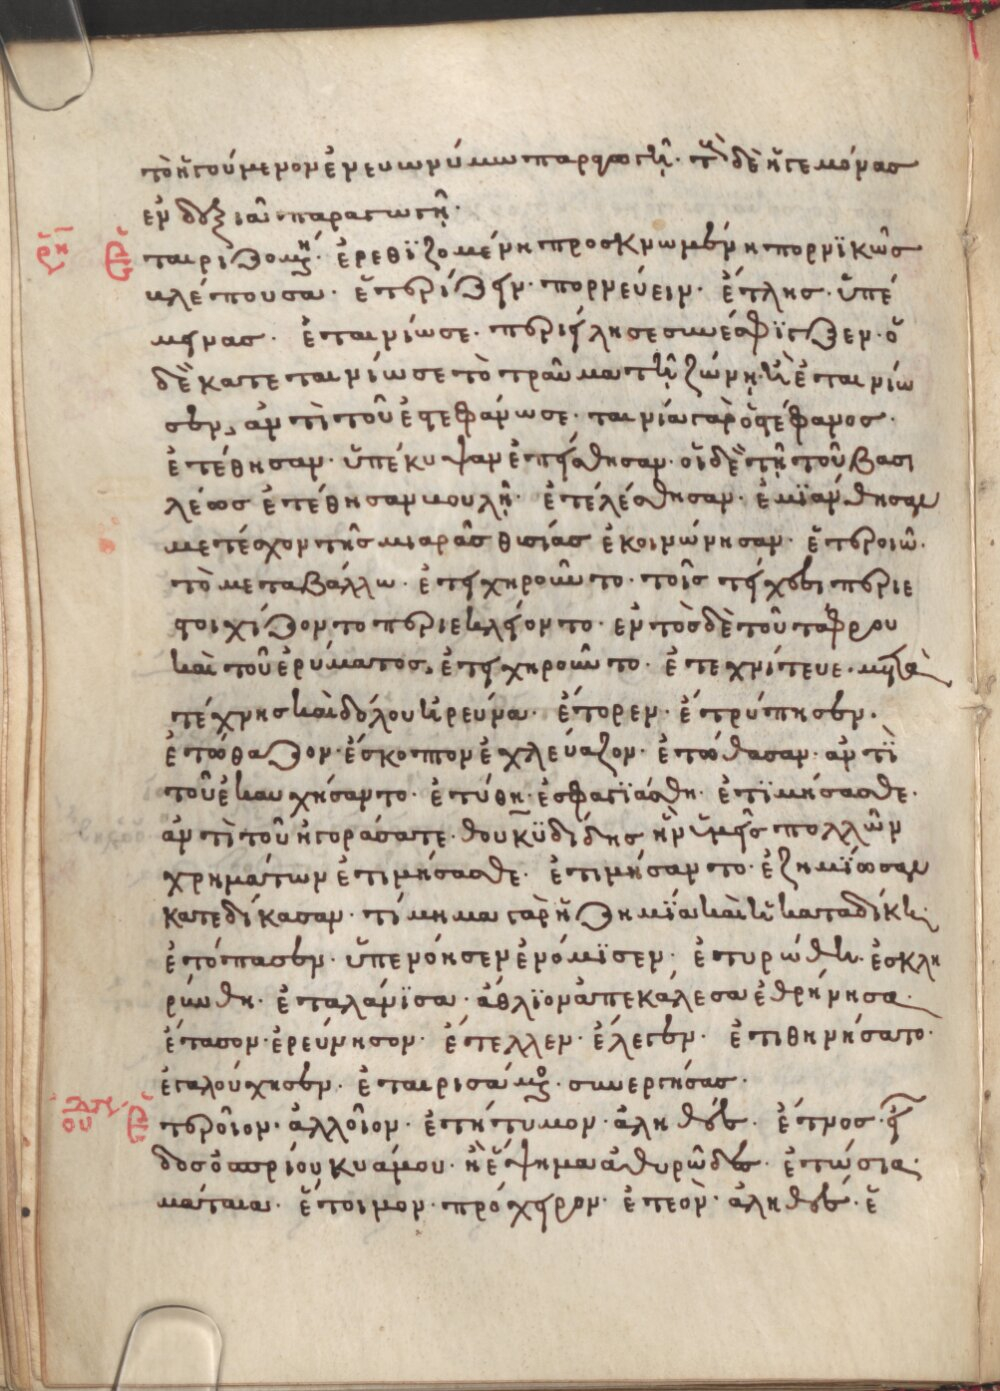 τὸ ἡγούμενον ἐν εὐωνύμω παραγωγῆ. τὸ δὲ ἡγεμόνας
ἐν δεξιᾶ παραγωγῆ.
ταιριζομένη. ἐρεθϊζομένη προσκνωμένη πορνϊκῶς
βλέπουσα. ἑτερίζειν. πορνεύειν. ἔτλης. ὑπέ
μεινας. ἐταινίωσε. περιείλησε συνέσφϊγξεν. ὁ
δὲ κατεταινίωσε τὸ τραῦμα τῆ ζώνη. καὶ ἐταινίω
σεν, ἀντὶ τοῦ ἐστεφάνωσε. ταινία γὰρ ὁ στέφανος.
ἐτέθησαν. ὑπέκυψαν ἐπείσθησαν. οἱ δὲ τῆ τοῦ βασι
λέως ἐτέθησαν βουλῆ. ἐτελέσθησαν. ἐμϊάνθησαν
μετέσχον τῆς μιαρᾶς θυσίας ἐκοινώνησαν. ἑτεροιῶ.
τὸ μεταβάλλω. ἐτειχηροῦντο. τοῖς τείχεσι περιε
στοιχίζοντο περιεκλείοντο. ἐντὸς δὲ τοῦ τάφρου
καὶ τοῦ ἐρύματος, ἐτειχηροῦντο. ἐτεχνίτευε. μετὰ
τέχνης καὶ δόλου ἠρεύνα. ἔτορεν. ἐτρύπησεν.
ἐτώθαζον. ἔσκοπτον ἐχλεύαζον. ἐτώθασαν. ἀντὶ
τοῦ ἐκαυχήσαντο. ἐτύθη. ἐσφαγϊάσθη. ἐτϊμήσασθε.
ἀντὶ τοῦ ἠγοράσατε. θουκϋδίδης ἣν ὑμεῖς πολλῶν
χρημάτων ἐτιμήσασθε. ἐτιμήσαντο. ἐζημϊωσαν
κατεδίκασαν. τίμημα γὰρ ἡ ζημϊα καὶ ἡ καταδίκη.
ἐτόπασεν. ὑπενόησεν ἐνόμϊσεν. ἐτυρώθη. ἐσκλη
ρύνθη. ἐταλάνϊσα. ἄθλϊον ἀπεκάλεσα ἐθρήνησα.
ἔτασον. ἐρεύνησον. ἔτελλεν. ἔλεγεν. ἐτιθηνήσατο.
ἐγαλούχησεν. ἑταιρισάμενος. συνεργήσας.
τεροῖον. ἀλλοῖον. ἐτήτυμον. ἀληθές. ἔτνος. εἶ
δος ὀσπρίου κυάμου. ἢ ἕψημα ἀθυρῶδες. ἐτώσια.
μάταια. ἕτοιμον. πρόχειρον. ἐτεὸν. ἀληθές. ἑ